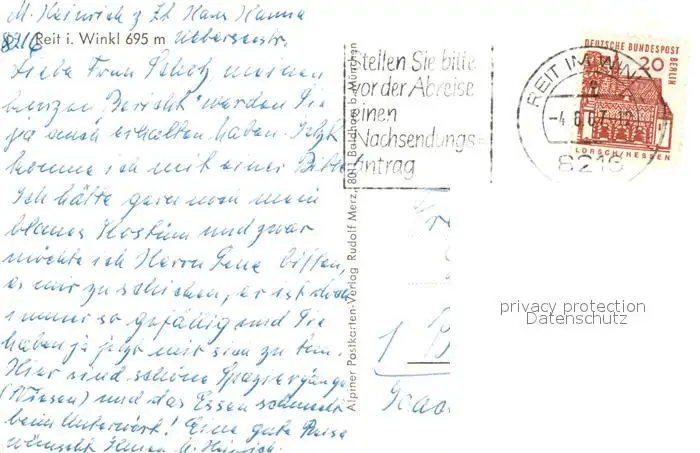 M. Heinrich z Zt Haus Hanna
8216 Reit i. Winkl 695 m
Liebe Frau Scholz, meinen
kurzen Bericht werden Sie
ja auch erhalten haben. Jetzt
komme ich mit einer Bitte
Ich hätte gern noch mein
blaues Kostüm und zwar
möchte ich Herrn bitten,
es mir zu schicken, er ist doch
immer so gefällig und Sie
haben ja jetzt mit ihm zu tun.
Hier sind schöne Spaziergänge
(Wiesen) und das Essen schmeckt
beim Unterwirt! Eine gute Reise
wünscht Ihnen M. Heinrich
Alpiner Postkarten-Verlag Rudolf Merz, 8011 Baldham b. München
Stellen Sie bitte
vor der Abreise
einen
Nachsendungs=
antrag
REIT IM WINKL
-4.6.67-12
8216
DEUTSCHE BUNDESPOST
BERLIN
20
LORSCH/HESSEN
1 B
privacy protection
Datenschutz